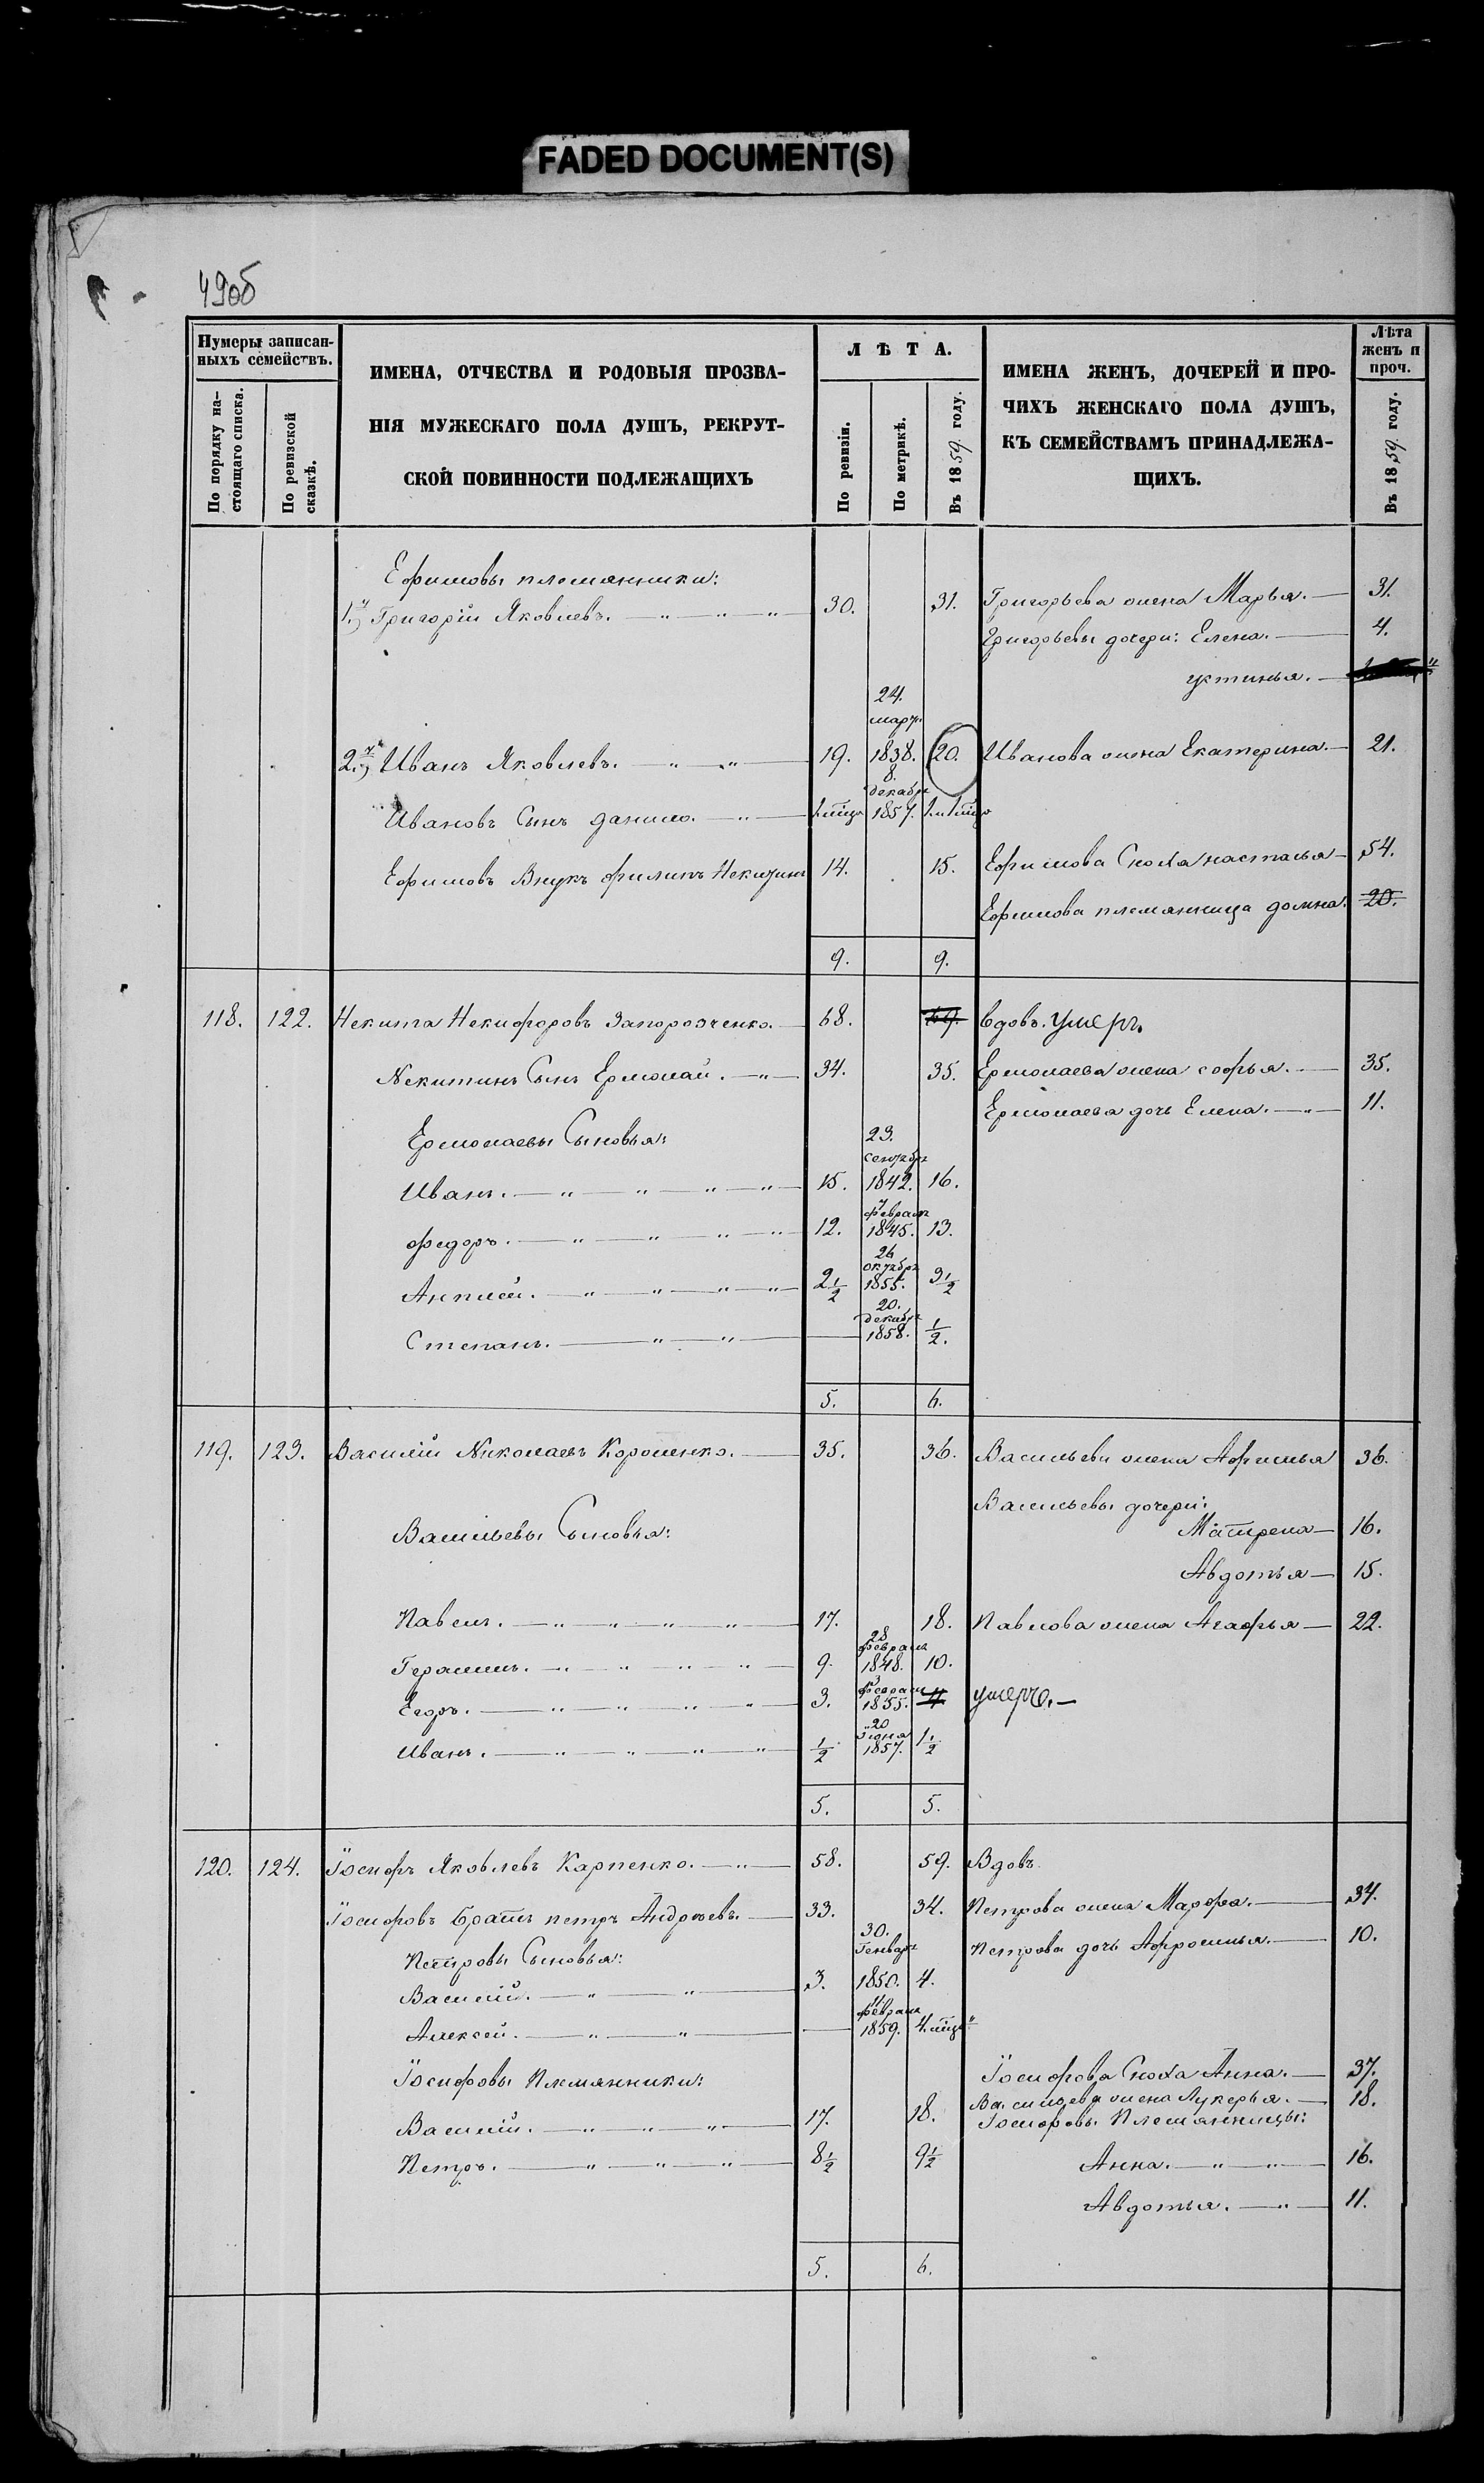 FADED DOCUMENT(S)
49об
Нумеры записан-
ныхъ семействъ.
По порядку на-
стоящаго списка.
По ревизской
сказкѣ.
ИМЕНА, ОТЧЕСТВА И РОДОВЫЯ ПРОЗВА-
НІЯ МУЖЕСКАГО ПОЛА ДУШЪ, РЕКРУТ-
СКОЙ ПОВИННОСТИ ПОДЛЕЖАЩИХЪ
ЛѢТА.
По ревизіи.
По метрикѣ.
Въ 1859 году.
ИМЕНА ЖЕНЪ, ДОЧЕРЕЙ И ПРО-
ЧИХЪ ЖЕНСКАГО ПОЛА ДУШЪ,
КЪ СЕМЕЙСТВАМЪ ПРИНАДЛЕЖА-
ЩИХЪ.
Лѣта
женъ и
проч.
Въ 1859 году.
Ефимовы племянники:
1.й Григорій Яковлевъ. 30. 31. Григорьева жена Марья. 31.
Григорьевы дочери: Елена. 4.
устинья.
24.
март.
2.й Иванъ Яковлевъ. 19. 1838. 20. Иванова жена Екатерина. 21.
8.
декабр
Ивановъ Сынъ данило. 1857.
Ефимовъ Внукъ филипъ Некитинъ 14. 15. Ефимова Сноха настасья 54.
Ефимова племянница домна. 20.
9. 9.
118. 122. Некита Некифоровъ Запорозченко. 68. 69. вдовъ. умеръ.
Некитинъ Сынъ Ермолай. 34. 35. Ермолаева жена софья. 35.
Ермолаева дочь Елена. 11.
Ермолаевы Сыновья:
23.
сентябр
Иванъ. 15. 1842. 16.
феврал
федоръ. 12. 1845. 13.
26
октябр
2 1/2 1855. 3 1/2
20.
декабр
Степанъ. 1858. 1/2.
5. 6.
119. 123. Василій Николаевъ Короленко. 35. 36. Васильева жена Афимья 36.
Васильевы дочери:
Васильевы Сыновья: Матрена 16.
Авдотья 15.
Павелъ. 17. 18. Павлова жена Агафья 22.
28
феврала
Герасимъ. 9. 1848. 10.
3
феврал
Егоръ. 3. 1855. 4 умеръ.
20
Іюня
Иванъ. 1/2 1857. 1 1/2
5. 5.
120. 124. Іосифъ Яковлевъ Карпенко. 58. 59. Вдовъ
Іосифовъ Братъ петръ Андреевъ. 33. 34. Петрова жена Марфа. 34.
30.
Генвар
Петровы Сыновья: Петрова дочь Афросинья. 10.
Василій. 3. 1850. 4.
11
феврала
Алексей. 1859. 4. мцъ
Іосифовы Племянники: Іосифова Сноха Анна. 37.
Васильева жена Лукерья. 18.
Василій. 17. 18. Іосифовы Племянницы:
Петръ. 8 1/2 9 1/2 Анна. 16.
Авдотья. 11.
5. 6.